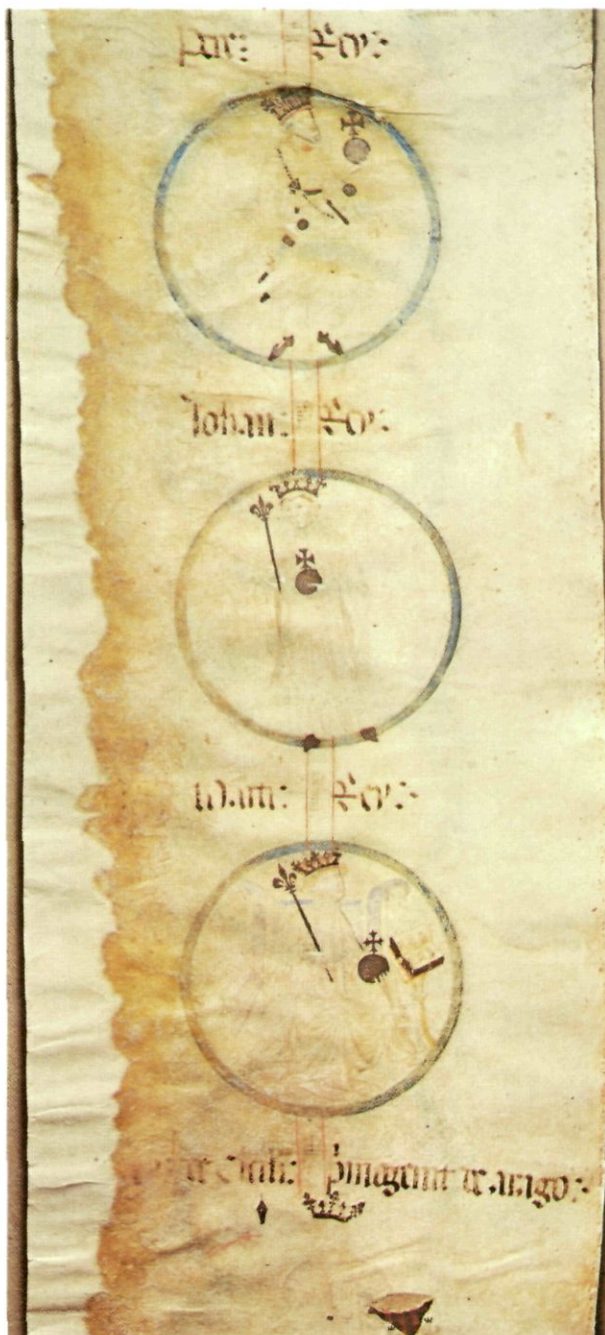 Pere: Rey:
Johan: Rey:
Marti: Rey:
de Cicili: p̄mogenit de arago: